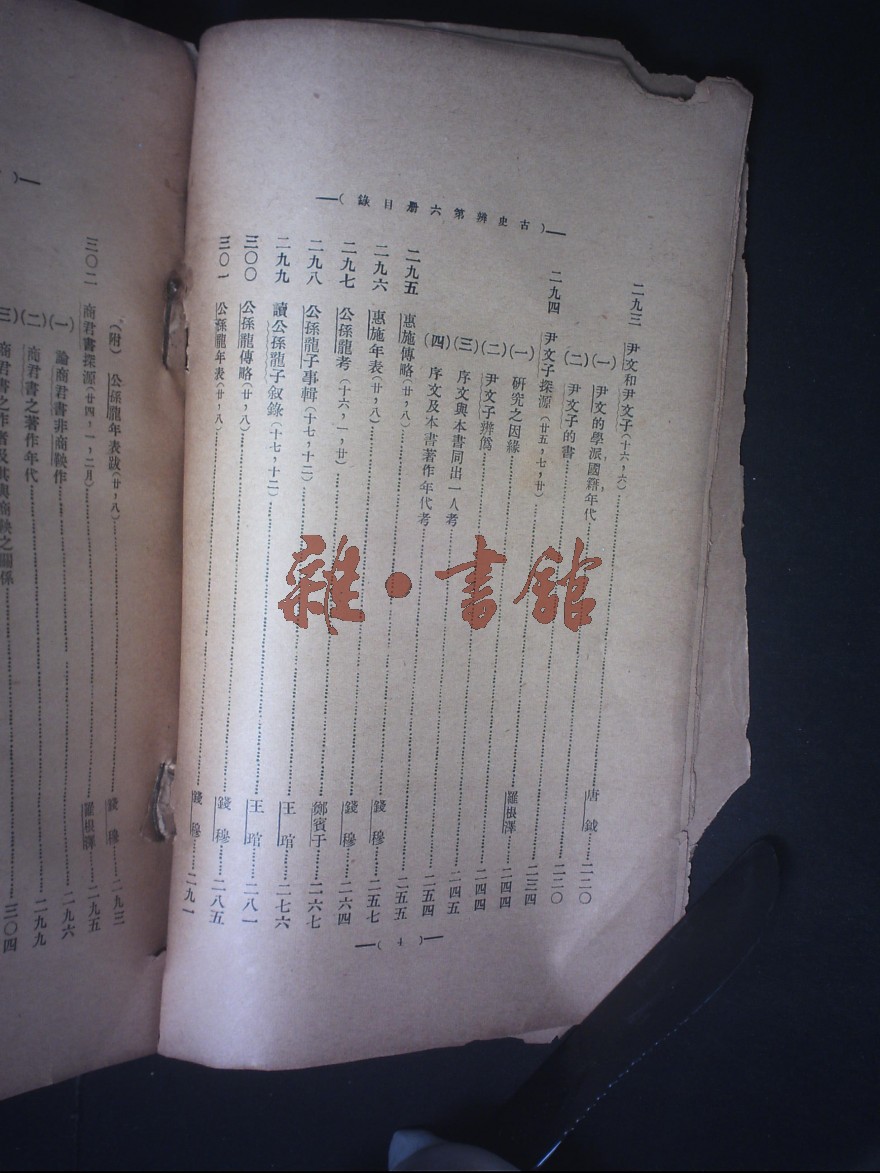 古史辨第六册目錄
二九三 尹文和尹文子(十六,六)……唐鉞……二二〇
(一) 尹文的學派,國籍,年代……二二〇
(二) 尹文子的書……二三四
二九四 尹文子探源(廿五,七,廿)……羅根澤……二四四
(一) 研究之因緣……二四四
(二) 尹文子辨僞……二四五
(三) 序文與本書同出一人考……二五四
(四) 序文及本書著作年代考……二五五
二九五 惠施傳略(廿,八)……錢穆……二五七
二九六 惠施年表(廿,八)……錢穆……二六四
二九七 公孫龍考(十六,一,廿)……鄭賓于……二六七
二九八 公孫龍子事輯(十七,十二)……王琯……二七六
二九九 讀公孫龍子敘錄(十七,十二)……王琯……二八一
三〇〇 公孫龍傳略(廿,八)……錢穆……二八五
三〇一 公孫龍年表(廿,八)……錢穆……二九一
( 4 )
(附) 公孫龍年表跋(廿,八)……錢穆……二九三
三〇二 商君書探源(廿四,一,二月)……羅根澤……二九五
(一) 論商君書非商鞅作……二九六
(二) 商君書之著作年代……二九九
(三) 商君書之作者及其與商鞅之關係……三〇四
雜·書館